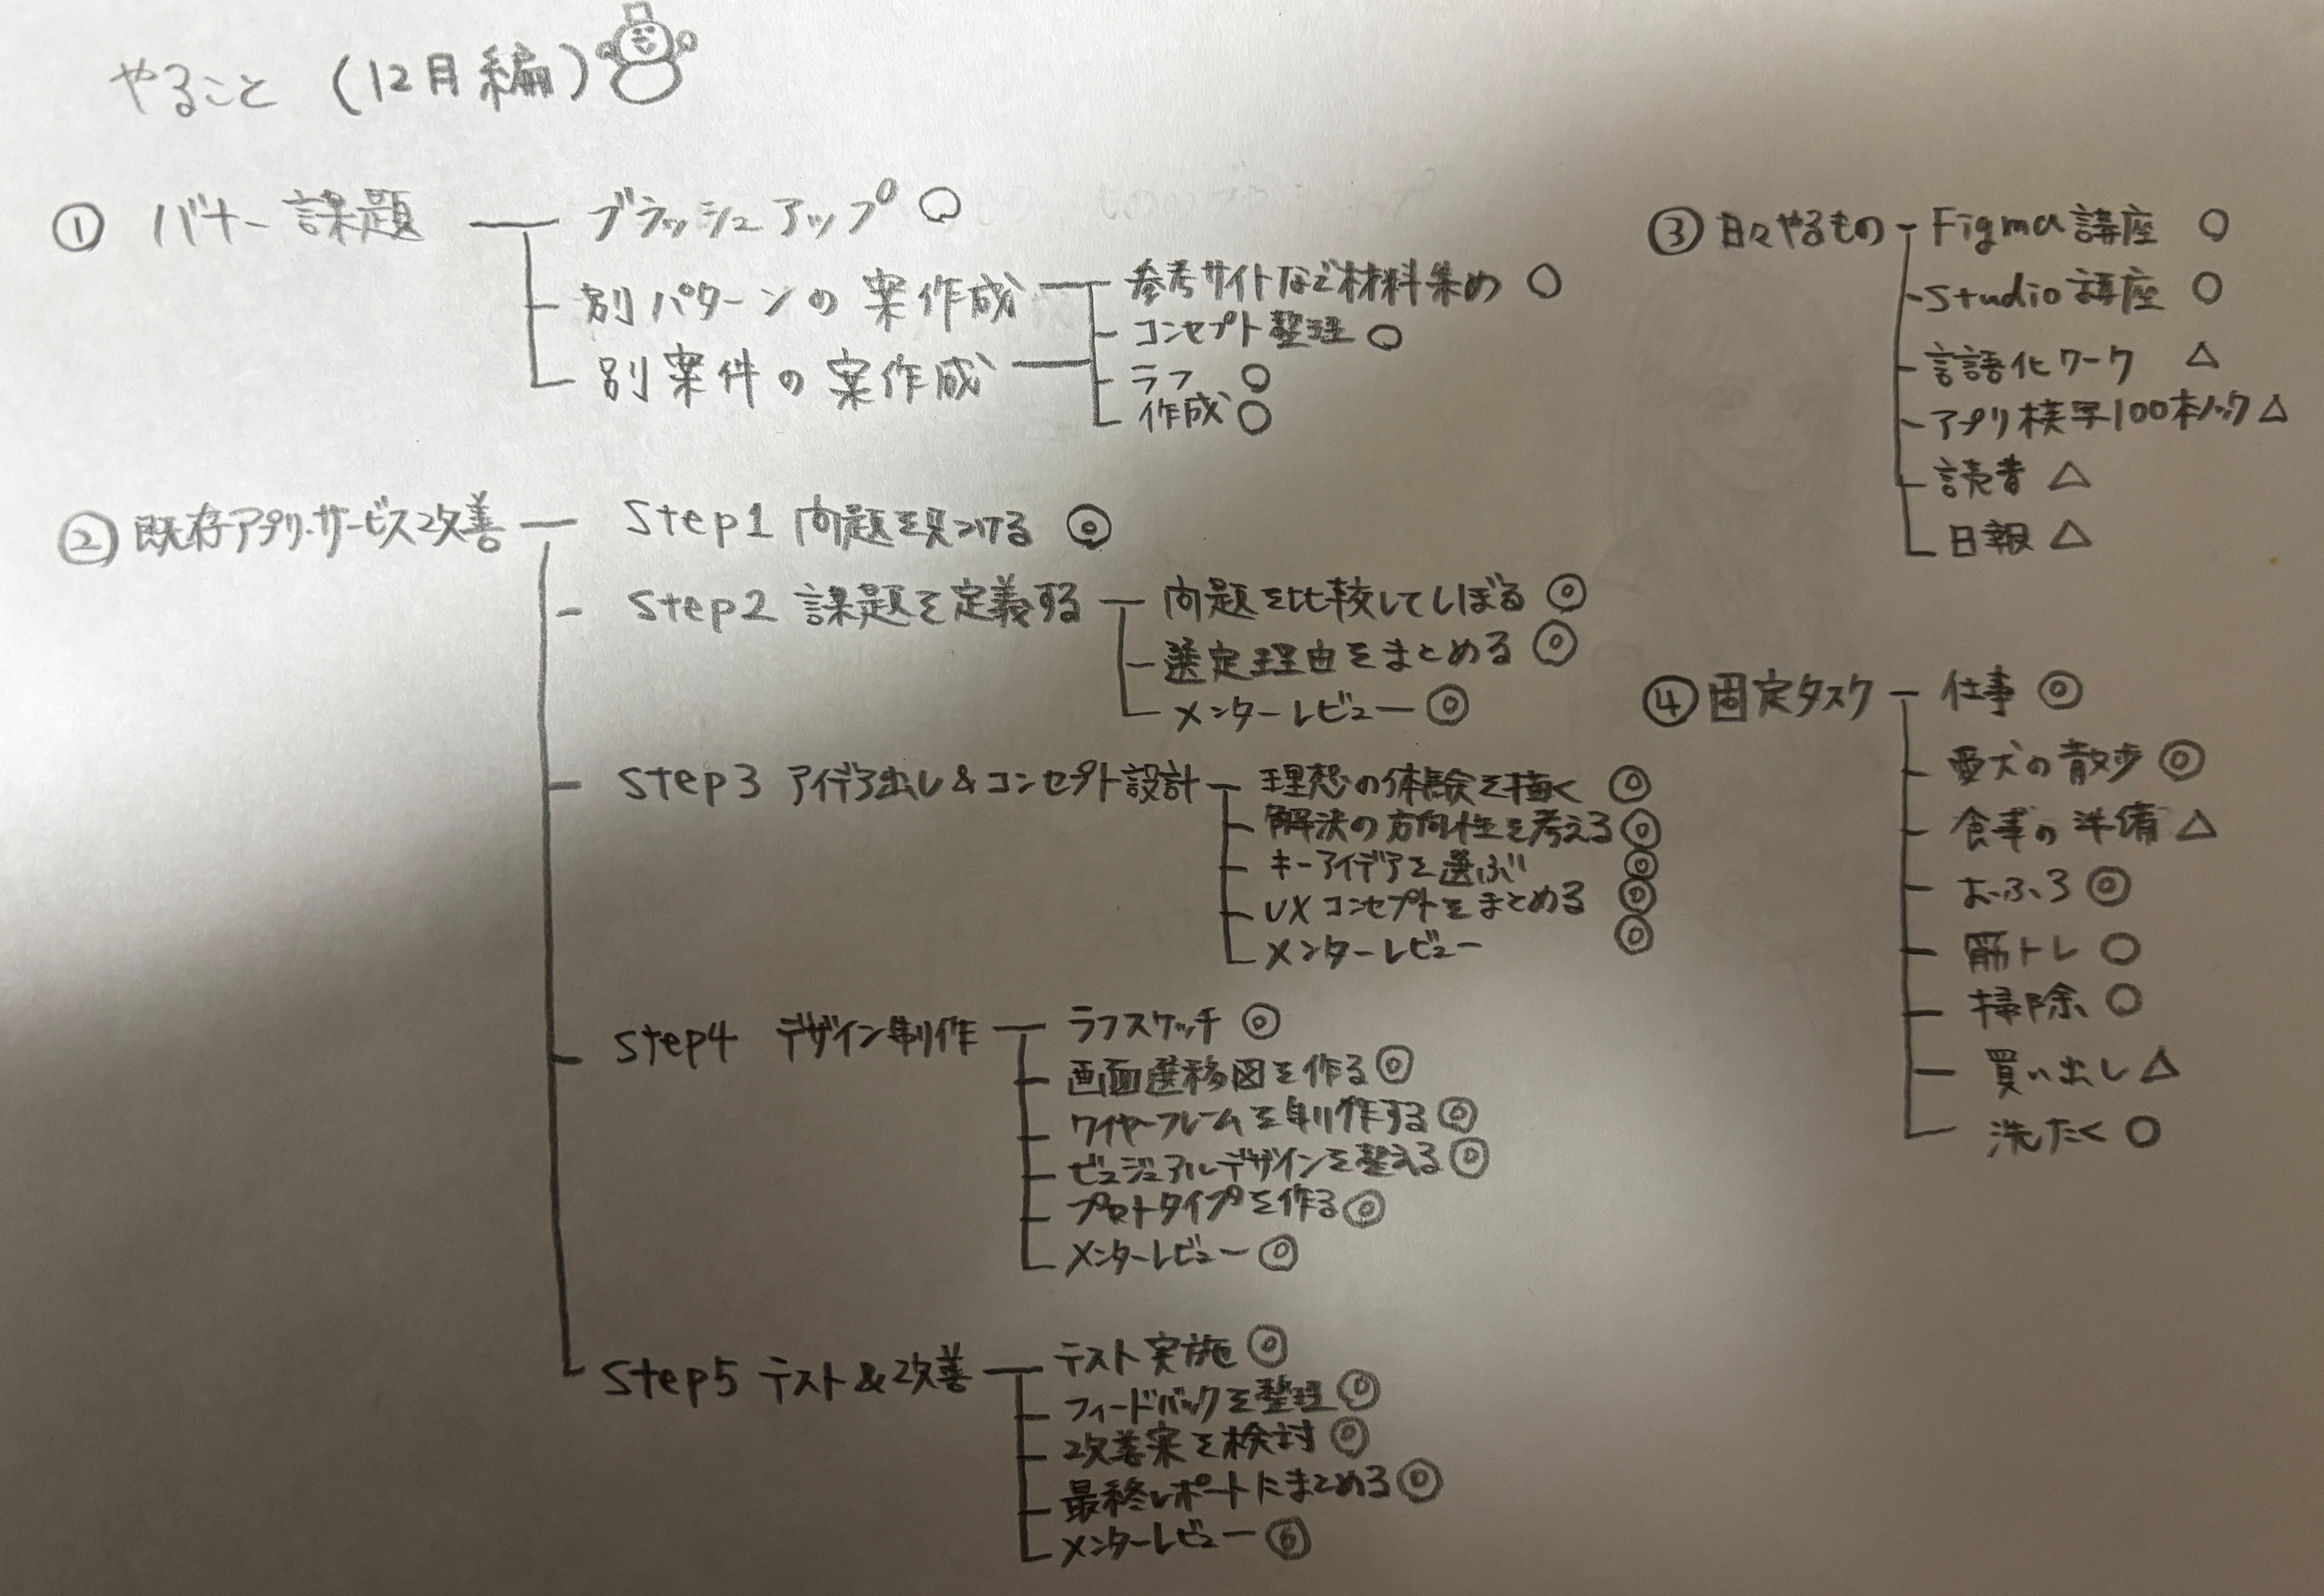 やること (12月編)
① バナー課題
ブラッシュアップ ○
別パターンの案作成
別案件の案作成
参考サイトなど材料集め ○
コンセプト整理 ○
ラフ ○
作成 ○
② 既存アプリ・サービス改善
Step1 問題を見つける ◎
Step2 課題を定義する
問題を比較してしぼる ◎
選定理由をまとめる ◎
メンターレビュー ◎
Step3 アイデア出し&コンセプト設計
理想の体験を描く ◎
解決の方向性を考える ◎
キーアイデアを選ぶ ◎
UXコンセプトをまとめる ◎
メンターレビュー ◎
Step4 デザイン制作
ラフスケッチ ◎
画面遷移図を作る ◎
ワイヤーフレームを制作する ◎
ビジュアルデザインを整える ◎
プロトタイプを作る ◎
メンターレビュー ◎
Step5 テスト&改善
テスト実施 ◎
フィードバックを整理 ◎
改善案を検討 ◎
最終レポートにまとめる ◎
メンターレビュー ◎
③ 日々やるもの
Figma講座 ○
Studio講座 ○
言語化ワーク △
アプリ模写100本ノック △
読書 △
日報 △
④ 固定タスク
仕事 ◎
愛犬の散歩 ◎
食事の準備 △
おふろ ◎
筋トレ ○
掃除 ○
買い出し △
洗たく ○